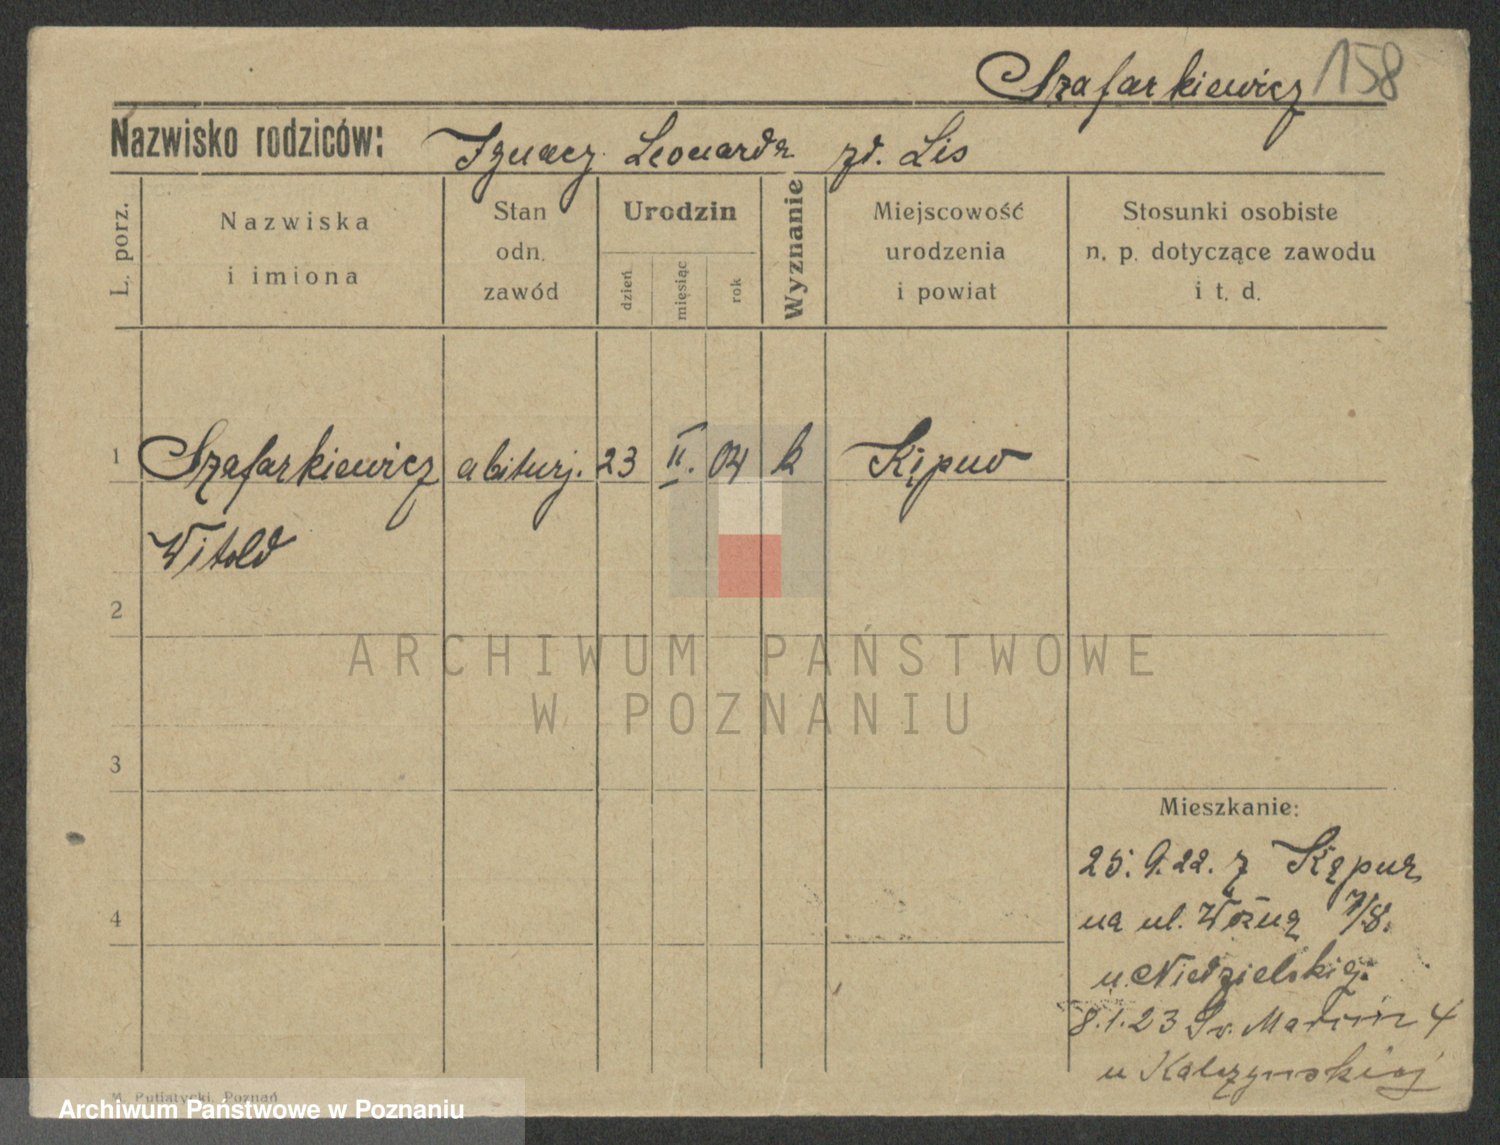 Szafarkiewicz 158
Nazwisko rodziców: Ignacy Leonarda zd. Lis
L. porz.
Nazwiska
i imiona
Stan
odn.
zawód
Urodzin
dzień
miesiąc
rok
Wyznanie
Miejscowość
urodzenia
i powiat
Stosunki osobiste
n. p. dotyczące zawodu
i t. d.
1 Szafarkiewicz abiturj. 23 II. 04 k Kępno
Witold
2
3
4
Mieszkanie:
25. 9. 22. z Kępna
na ul. Woźną 7/8.
u Niedzielskiej.
8.1.23 Św. Marcin 4
u
M. Putiatycki, Poznań
ARCHIWUM PAŃSTWOWE
W POZNANIU
Archiwum Państwowe w Poznaniu